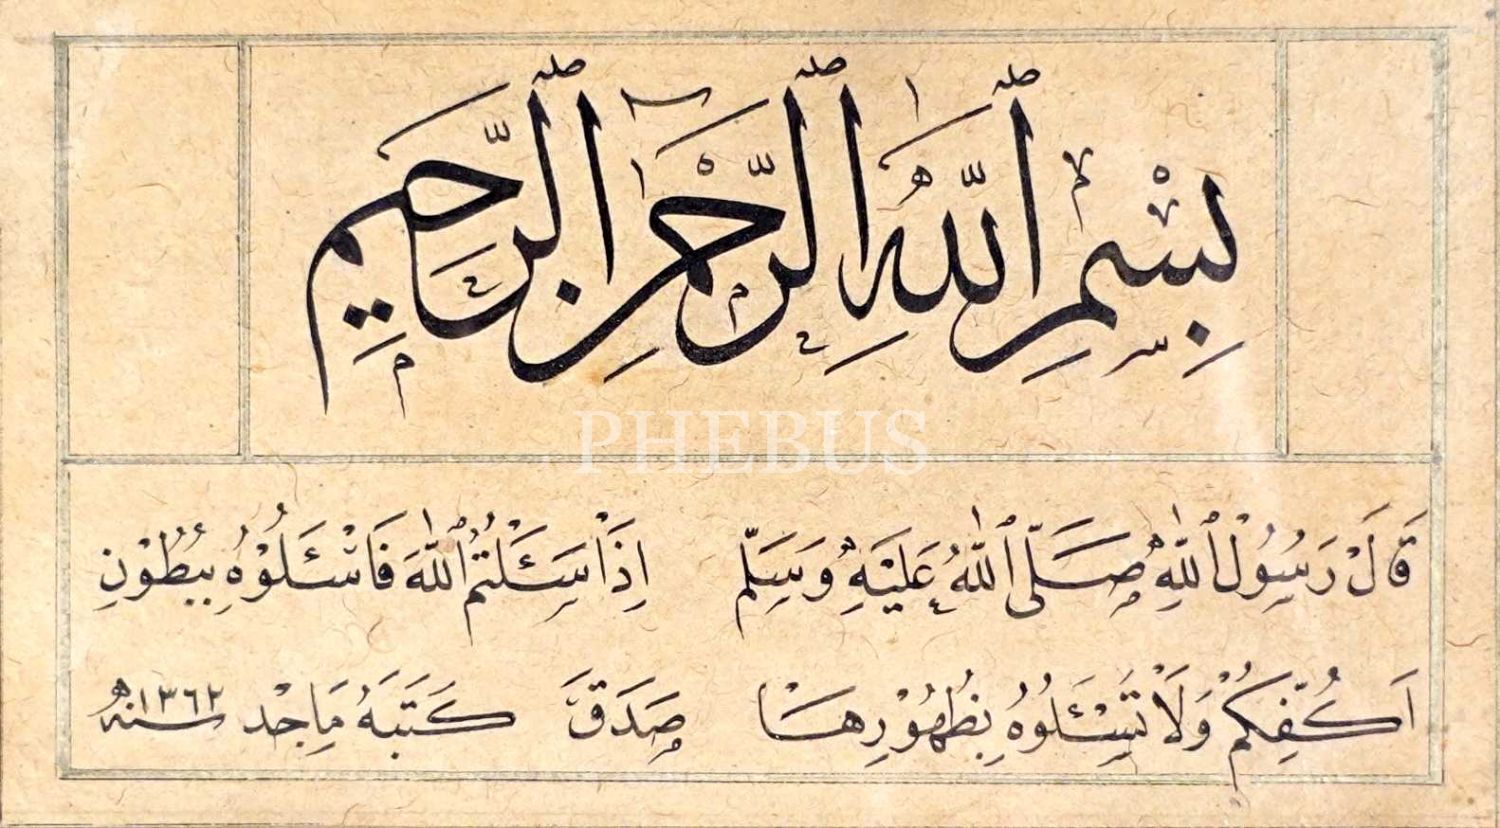 بِسْمِ اللّٰهِ الرَّحْمٰنِ الرَّحِيمِ
PHEBUS
قَالَ رَسُولُ اللّٰهِ صَلَّى اللّٰهُ عَلَيْهِ وَسَلَّم اِذَا سَئَلْتُمُ اللّٰهَ فَاسْئَلُوْهُ بِبُطُوْنِ
اَكُفِّكُمْ وَلَا تَسْئَلُوُهُ بِظُهُوْرِهَا صَدَقَ كَتَبَهُ مَاجْد سنه ١٣٦٢